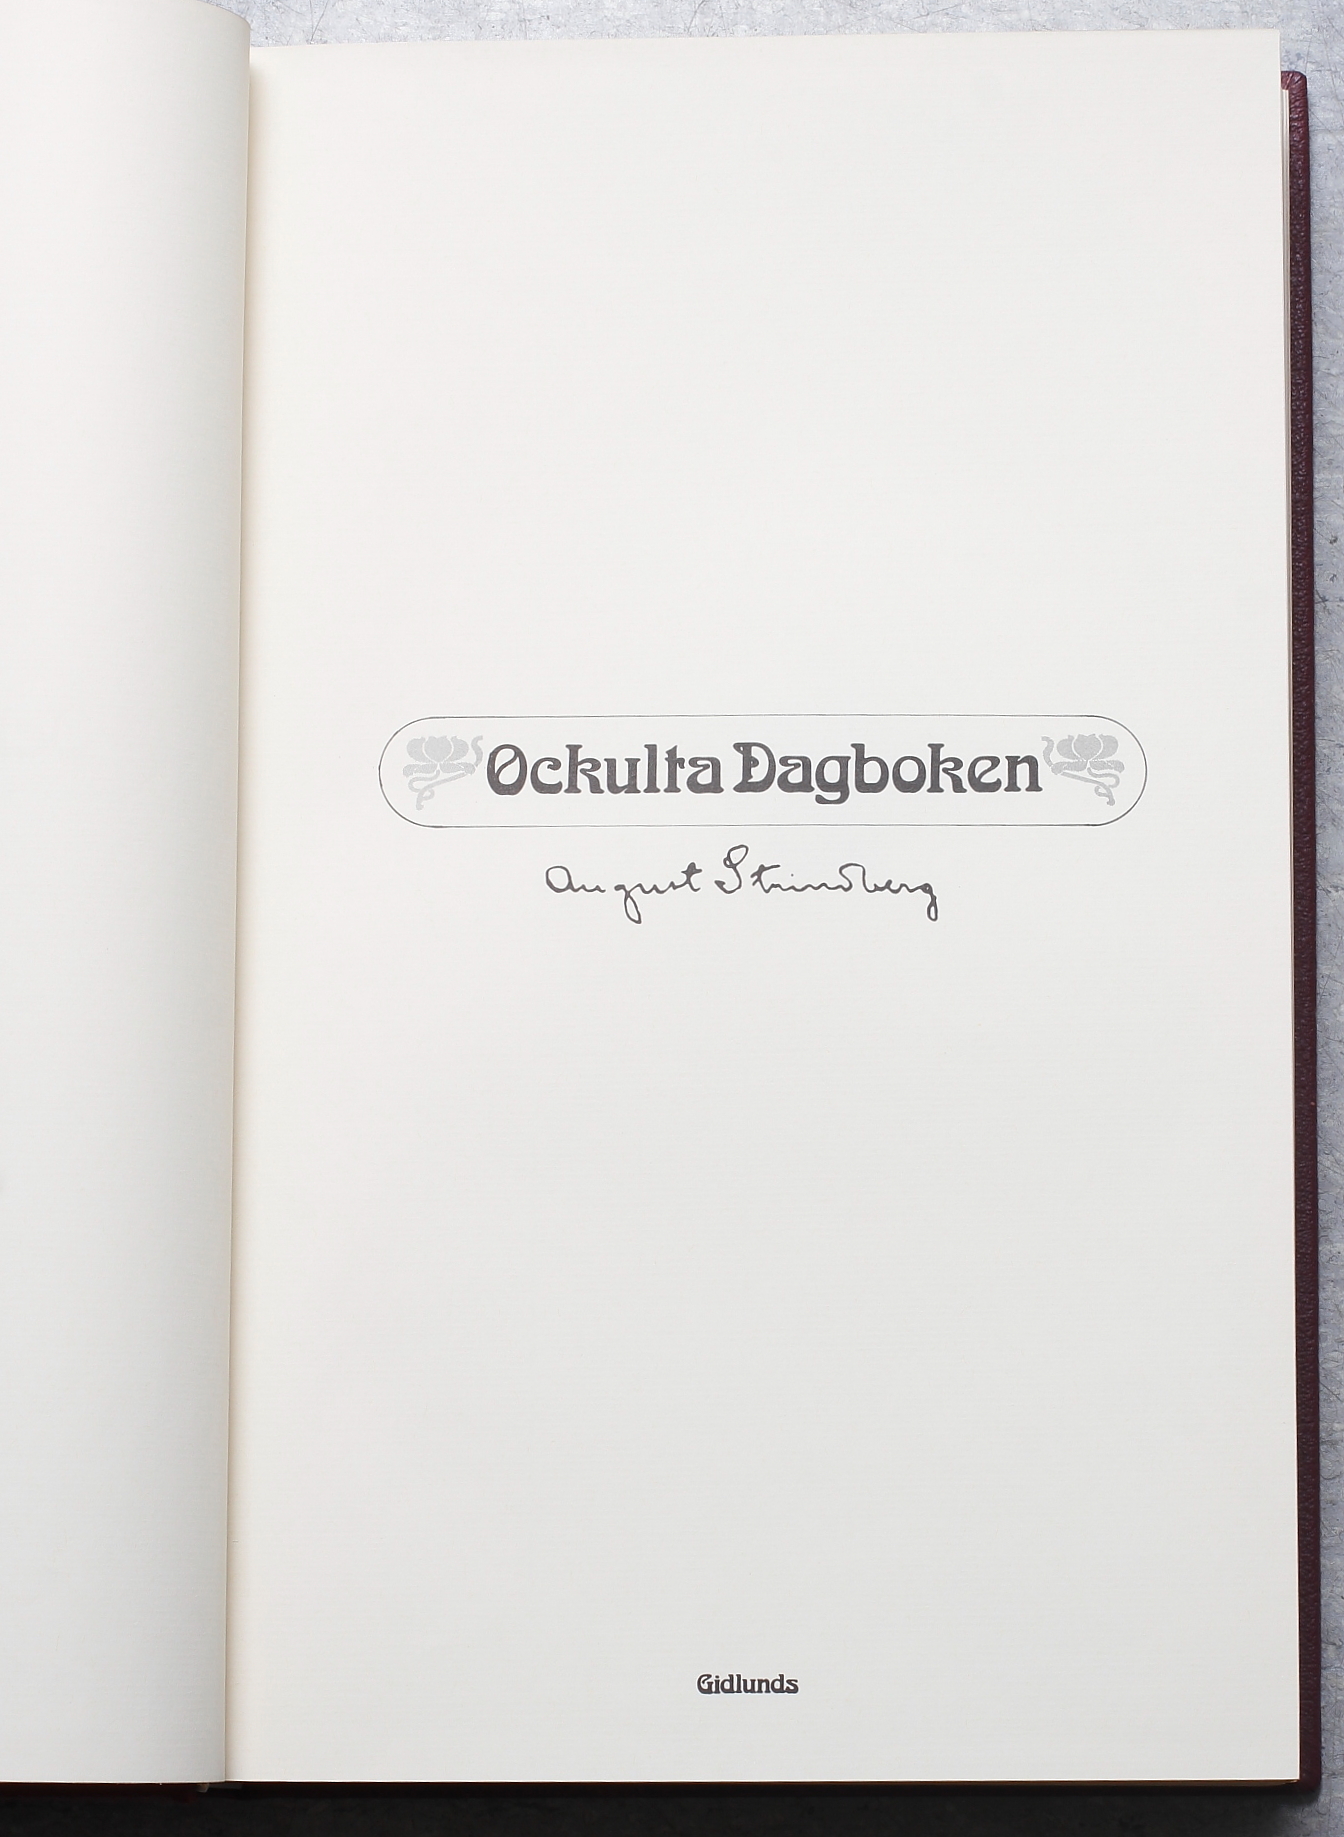 Ockulta Dagboken
August Strindberg
Gidlunds